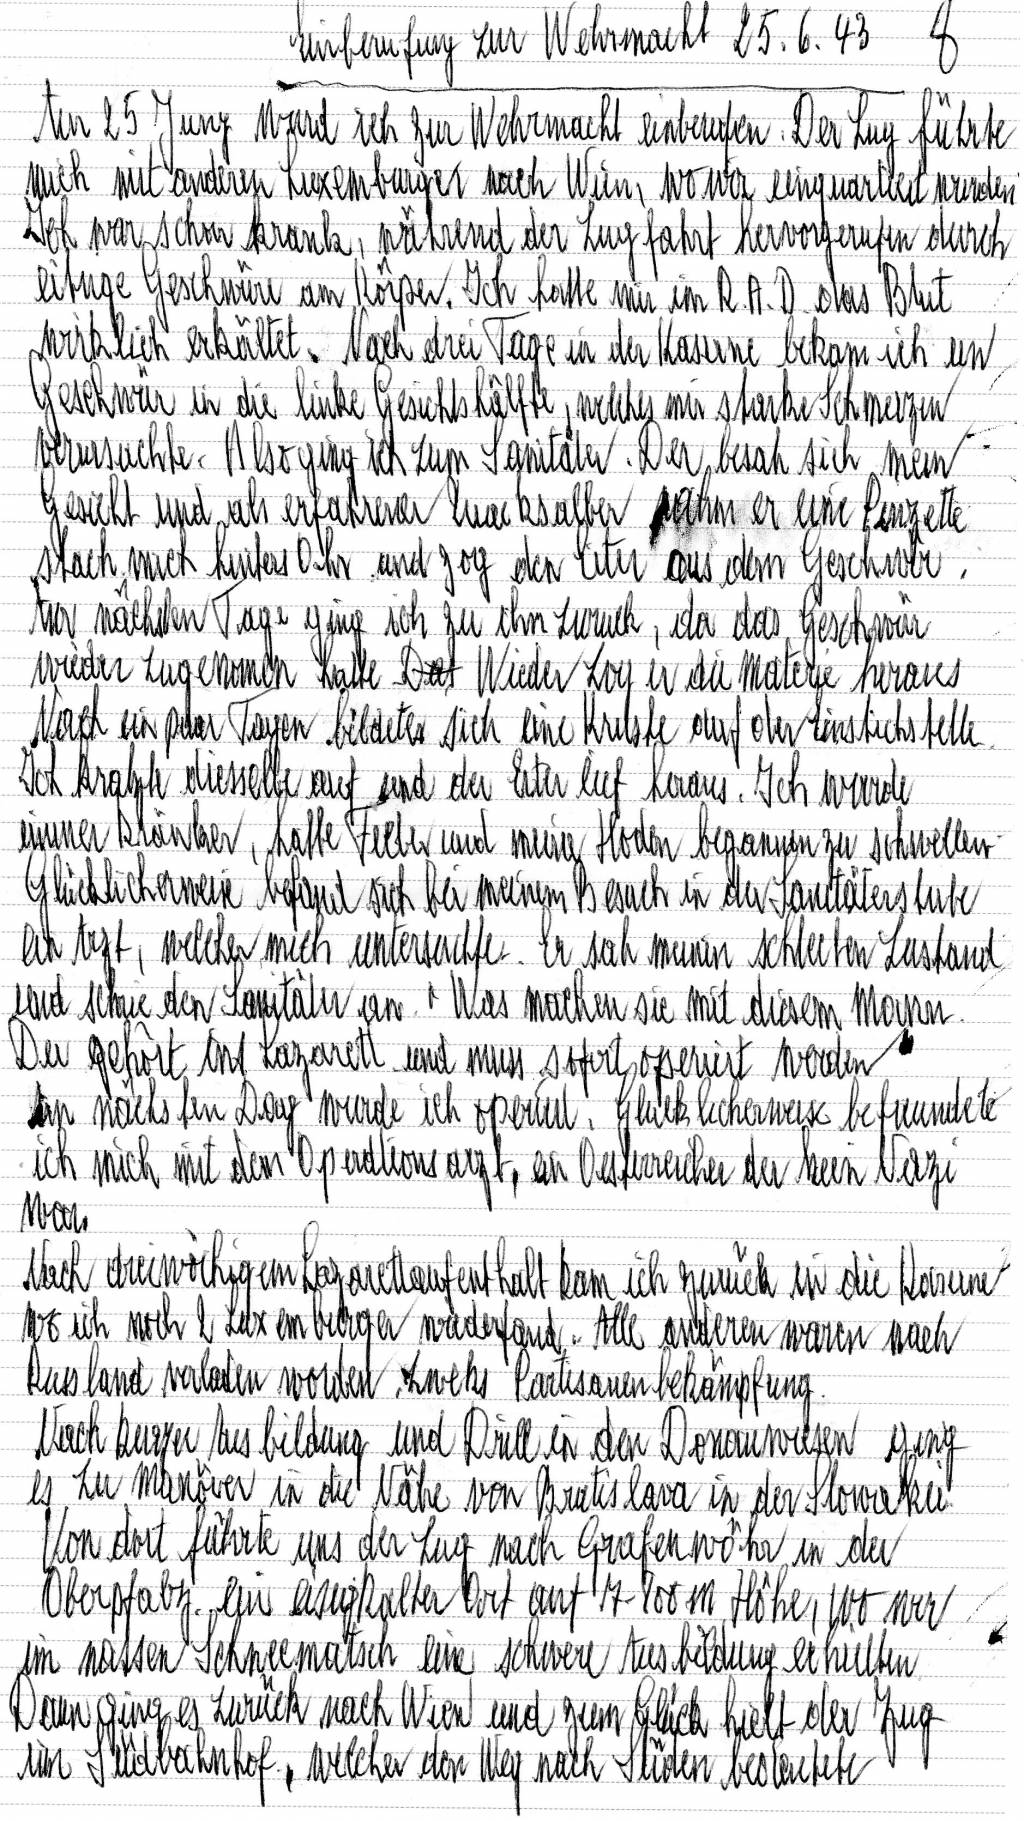 Einberufung zur Wehrmacht 25.6.43 8
Am 25 Juny wurd ich zur Wehrmacht einberufen. Der Zug führte
mich mit anderen Luxemburger nach Wien, wo wir einquartiert wurden
Ich war schon krank, während der Zugfahrt hervorgerufen durch
eitrige Geschwüre am Körper. Ich hatte mir im R.A.D das Blut
wirklich erkältet. Nach drei Tage in der Kaserne bekam ich ein
Geschwür in die linke Gesichtshälfte, welches mir starke Schmerzen
verursachte. Also ging ich zum Sanitäter. Der besah sich mein
Gesicht und als erfahrener Quacksalber nahm er eine Pinzette
stach mich hinters Ohr und zog den Eiter aus dem Geschwür.
Am nächsten Tage ging ich zu ihm zurück, da das Geschwür
wieder zugenomen hatte Wieder zog er die Materie heraus
Nach ein paar Tagen bildete sich eine Kruste auf der Einstichstelle.
Ich kratzte diesselbe auf und der Eiter lief heraus. Ich wurde
immer kränker, hatte Fieber und meine Hoden begannen zu schwellen
Glücklicherweise befand sich bei meinem Besuch in der Sanitäterstube
ein Arzt, welcher mich untersuchte. Er sah meinen schlechten Zustand
und schrie den Sanitäter an. "Was machen sie mit diesem Mann.
Der gehört ins Lazarett und muss sofort operiert werden"
Am nächsten Dag wurde ich operiert. Glücklicherweise befreundete
ich mich mit dem Operationsarzt, ein Oesterreicher der kein Nazi
war.
Nach dreiwöchigem Lazarettaufenthalt kam ich zurück in die Kaserne
wo ich noch 2 Luxemburger wiederfand. Alle anderen waren nach
Russland verladen worden zweks Partisanenbekämpfung.
Nach kurzer Ausbildung und Drill in den Donauwiesen ging
es zu Manöver in die Nähe von Bratislava in der Slowakei
Von dort führte uns der Zug nach Grafenwöhr in der
Oberpfalz. ein eisigkalter Ort auf 17-800 m Höhe, wo wir
im nassen Schneematsch eine schwere Ausbildung erhielten
Dann ging es zurück nach Wien und zum Glück hielt der Zug
im Südbahnhof, welcher den Weg nach Süden bedeutete